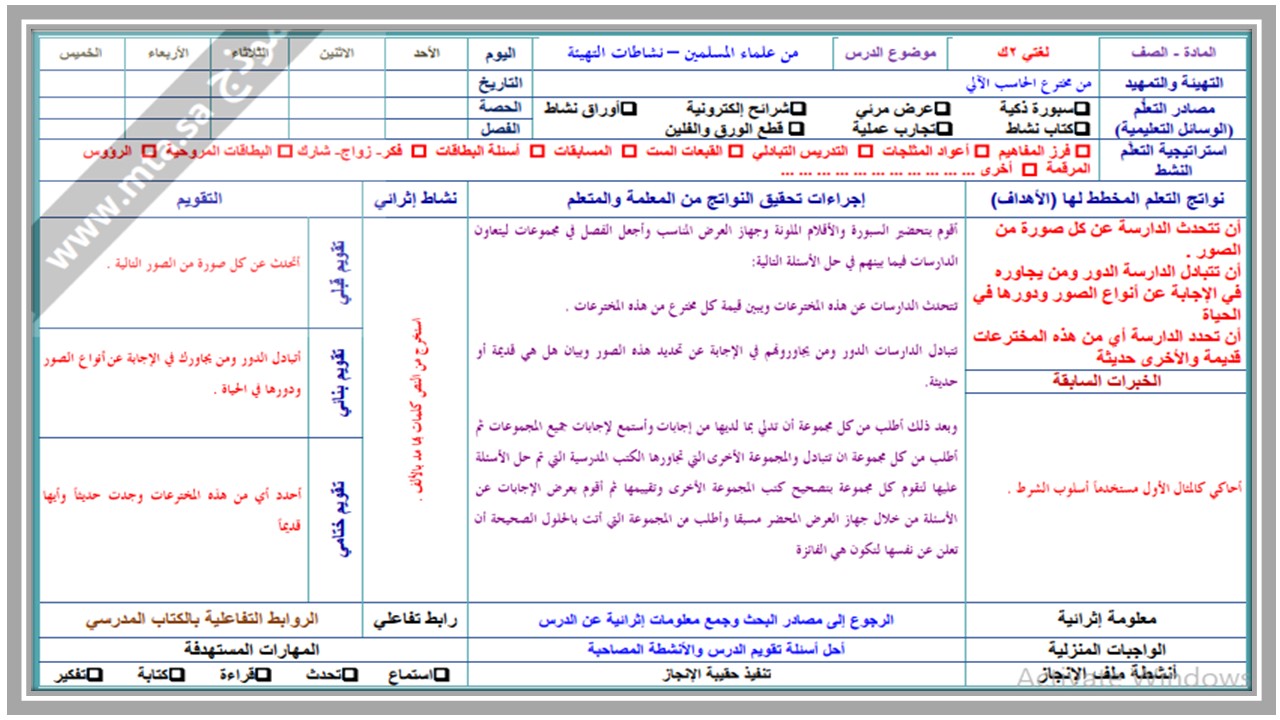 المادة - الصف لغتي ٢ك موضوع الدرس من علماء المسلمين – نشاطات التهيئة اليوم الأحد الاثنين الثلاثاء الأربعاء الخميس
التهيئة والتمهيد من مخترع الحاسب الآلي التاريخ
مصادر التعلّم سبورة ذكية عرض مرئي شرائح إلكترونية أوراق نشاط الحصة
(الوسائل التعليمية) كتاب نشاط تجارب عملية قطع الورق والفلين الفصل
استراتيجية التعلّم فرز المفاهيم أعواد المثلجات التدريس التبادلي القبعات الست المسابقات أسئلة البطاقات فكر- زواج- شارك البطاقات المروحية الرؤوس
النشط المرقمة أخرى ... ... ... ... ... ... ... ... ... ... ...
نواتج التعلم المخطط لها (الأهداف) إجراءات تحقيق النواتج من المعلمة والمتعلم نشاط إثرائي التقويم
أن تتحدث الدارسة عن كل صورة من
الصور .
أن تتبادل الدارسة الدور ومن يجاوره
في الإجابة عن أنواع الصور ودورها في
الحياة
أن تحدد الدارسة أي من هذه المخترعات
قديمة والأخرى حديثة
الخبرات السابقة
أحاكي كالمثال الأول مستخدماً أسلوب الشرط .
أقوم بتحضير السبورة والأقلام الملونة وجهاز العرض المناسب وأجعل الفصل في مجموعات ليتعاون
الدارسات فيما بينهم في حل الأسئلة التالية:
تتحدث الدارسات عن هذه المخترعات ويبين قيمة كل مخترع من هذه المخترعات .
تتبادل الدارسات الدور ومن يجاورونهم في الإجابة عن تحديد هذه الصور وبيان هل هي قديمة أو
حديثة.
وبعد ذلك أطلب من كل مجموعة أن تدلي بما لديها من إجابات وأستمع لإجابات جميع المجموعات ثم
أطلب من كل مجموعة ان تتبادل والمجموعة الأخرى التي تجاورها الكتب المدرسية التي تم حل الأسئلة
عليها لتقوم كل مجموعة بتصحيح كتب المجموعة الأخرى وتقييمها ثم أقوم بعرض الإجابات عن
الأسئلة من خلال جهاز العرض المحضر مسبقا وأطلب من المجموعة التي أتت بالحلول الصحيحة أن
تعلن عن نفسها لتكون هي الفائزة
استخرج من النص كلمات بها مد بالألف .
تقويم قبلي
أتحدث عن كل صورة من الصور التالية .
تقويم بنائي
أتبادل الدور ومن يجاورك في الإجابة عن أنواع الصور
ودورها في الحياة .
تقويم ختامي
أحدد أي من هذه المخترعات وجدت حديثاً وأيها
قديماً
معلومة إثرائية الرجوع إلى مصادر البحث وجمع معلومات إثرائية عن الدرس رابط تفاعلي الروابط التفاعلية بالكتاب المدرسي
الواجبات المنزلية أحل أسئلة تقويم الدرس والأنشطة المصاحبة المهارات المستهدفة
أنشطة ملف الإنجاز تنفيذ حقيبة الإنجاز استماع تحدث قراءة كتابة تفكير
نموذج www.mta.sa
Activate Windows